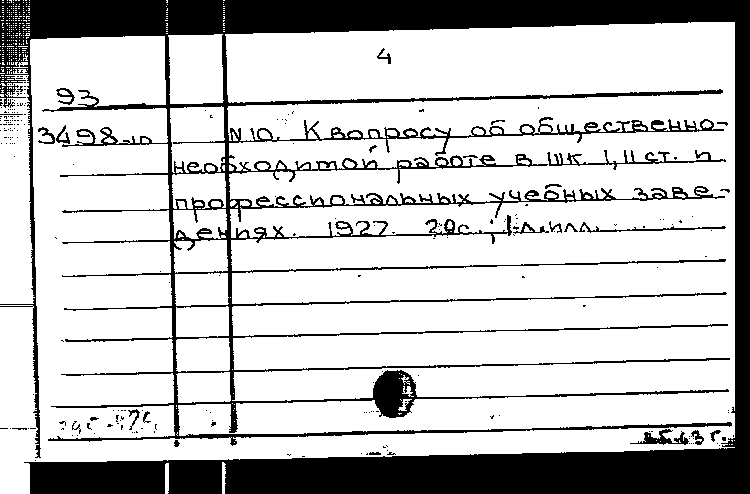 4
93
3498-10 N10. К вопросу об общественно-
необходимой работе в шк I, II ст. и
профессиональных учебных заве-
дениях. 1927. 20с.; 1л.илл.